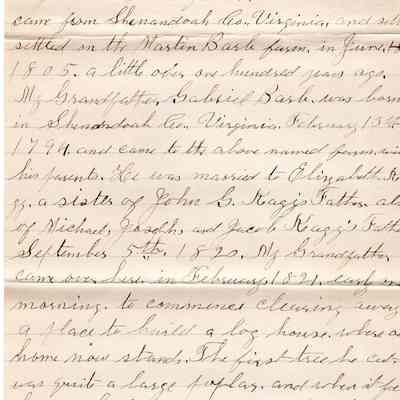 came from Shenandoah Co., Virginia, and
settled on the Martin Barb farm, in June,
1805. a little over one hundred years ago.
My Grandfather, Gabriel Barb, was born
in Shenandoah Co., Virginia, February 13th
1794, and came to the above named farm, with
his parents. He was married to Elizabeth
a sister of John G. Kagg's Father, also
of Michael, Joseph, and Jacob Kagg's Father
September 5th, 1820. My Grandfather,
came over here in February, 1821, early
morning, to commence clearing away
a place to build a log house, where
home now stands. The first tree he cut
was quite a large poplar, and when it